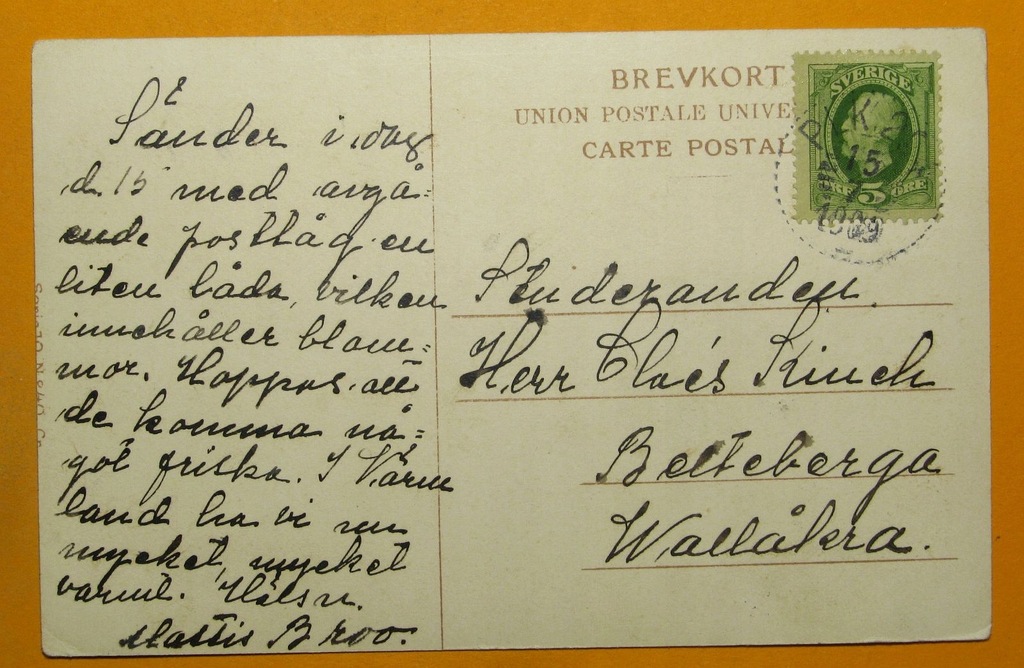 Sänder i dag
d. 15 med avgå=
ende posttåg en
liten låda, vilken
innehåller blom=
mor. Hoppas att
de komma nå=
got friska. I Värm
land ha vi nu
mycket, mycket
varmt. Hälsn.
Mattis Broo.
BREVKORT
UNION POSTALE UNIVE
CARTE POSTAL
SVERIGE
5 ÖRE
15
1909
Studeranden.
Herr Claës Kinch
Belteberga
Wallåkra.